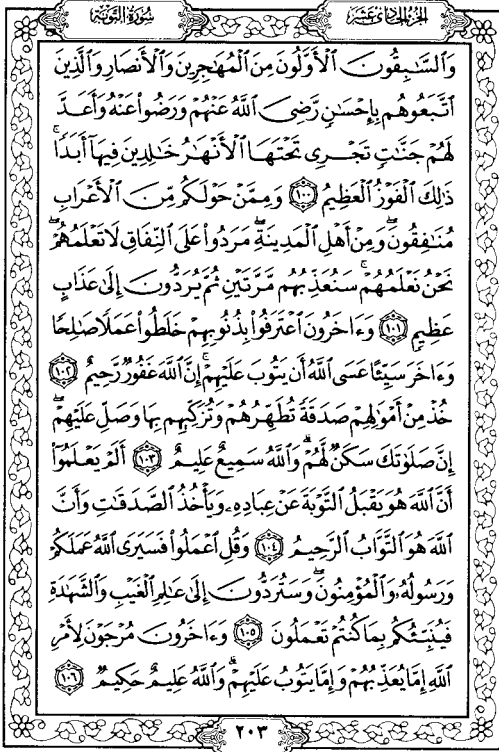 الجزء الحادي عشر
سورة التوبة
وَالسَّٰبِقُونَ الْأَوَّلُونَ مِنَ الْمُهَٰجِرِينَ وَالْأَنصَارِ وَالَّذِينَ
اتَّبَعُوهُم بِإِحْسَٰنٍ رَّضِيَ اللَّهُ عَنْهُمْ وَرَضُوا۟ عَنْهُ وَأَعَدَّ
لَهُمْ جَنَّٰتٍ تَجْرِى تَحْتَهَا الْأَنْهَٰرُ خَٰلِدِينَ فِيهَآ أَبَدًا ۚ
ذَٰلِكَ الْفَوْزُ الْعَظِيمُ ١٠٠ وَمِمَّنْ حَوْلَكُم مِّنَ الْأَعْرَابِ
مُنَٰفِقُونَ ۖ وَمِنْ أَهْلِ الْمَدِينَةِ ۖ مَرَدُوا۟ عَلَى النِّفَاقِ لَا تَعْلَمُهُمْ ۖ
نَحْنُ نَعْلَمُهُمْ ۚ سَنُعَذِّبُهُم مَّرَّتَيْنِ ثُمَّ يُرَدُّونَ إِلَىٰ عَذَابٍ
عَظِيمٍ ١٠١ وَءَاخَرُونَ اعْتَرَفُوا۟ بِذُنُوبِهِمْ خَلَطُوا۟ عَمَلًا صَٰلِحًا
وَءَاخَرَ سَيِّئًا عَسَى اللَّهُ أَن يَتُوبَ عَلَيْهِمْ ۚ إِنَّ اللَّهَ غَفُورٌ رَّحِيمٌ ١٠٢
خُذْ مِنْ أَمْوَٰلِهِمْ صَدَقَةً تُطَهِّرُهُمْ وَتُزَكِّيهِم بِهَا وَصَلِّ عَلَيْهِمْ ۖ
إِنَّ صَلَوٰتَكَ سَكَنٌ لَّهُمْ ۗ وَاللَّهُ سَمِيعٌ عَلِيمٌ ١٠٣ أَلَمْ يَعْلَمُوٓا۟
أَنَّ اللَّهَ هُوَ يَقْبَلُ التَّوْبَةَ عَنْ عِبَادِهِۦ وَيَأْخُذُ الصَّدَقَٰتِ وَأَنَّ
اللَّهَ هُوَ التَّوَّابُ الرَّحِيمُ ١٠٤ وَقُلِ اعْمَلُوا۟ فَسَيَرَى اللَّهُ عَمَلَكُمْ
وَرَسُولُهُۥ وَالْمُؤْمِنُونَ ۖ وَسَتُرَدُّونَ إِلَىٰ عَٰلِمِ الْغَيْبِ وَالشَّهَٰدَةِ
فَيُنَبِّئُكُم بِمَا كُنتُمْ تَعْمَلُونَ ١٠٥ وَءَاخَرُونَ مُرْجَوْنَ لِأَمْرِ
اللَّهِ إِمَّا يُعَذِّبُهُمْ وَإِمَّا يَتُوبُ عَلَيْهِمْ ۗ وَاللَّهُ عَلِيمٌ حَكِيمٌ ١٠٦
٢٠٣